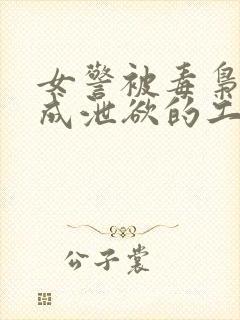 女警被毒枭
成泄欲的工
公子裳